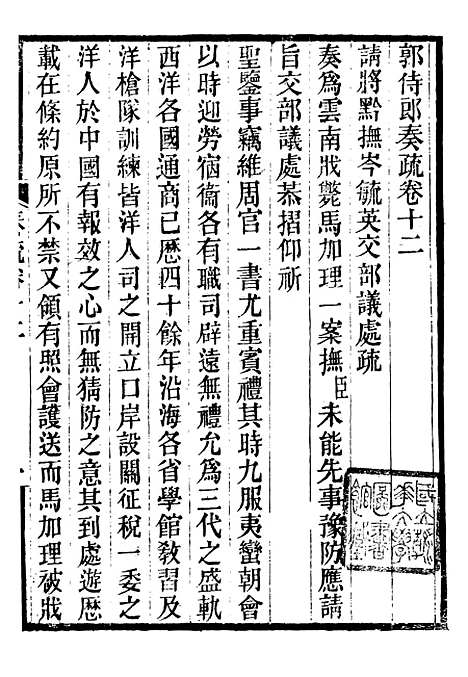 郭侍郎奏疏卷十二
請將黔撫岑毓英交部議處疏
奏爲雲南戕斃馬加理一案撫臣未能先事豫防應請
旨交部議處恭摺仰祈
聖鑒事竊維周官一書尤重賓禮其時九服夷蠻朝會
以時迎勞宿衞各有職司辟遠無禮允爲三代之盛軌
西洋各國通商已歷四十餘年沿海各省學館敎習及
洋槍隊訓練皆洋人司之開立口岸設關征稅一委之
洋人於中國有報效之心而無猜防之意其到處遊歷
載在條約原所不禁又領有照會護送而馬加理被戕
奏疏卷十二